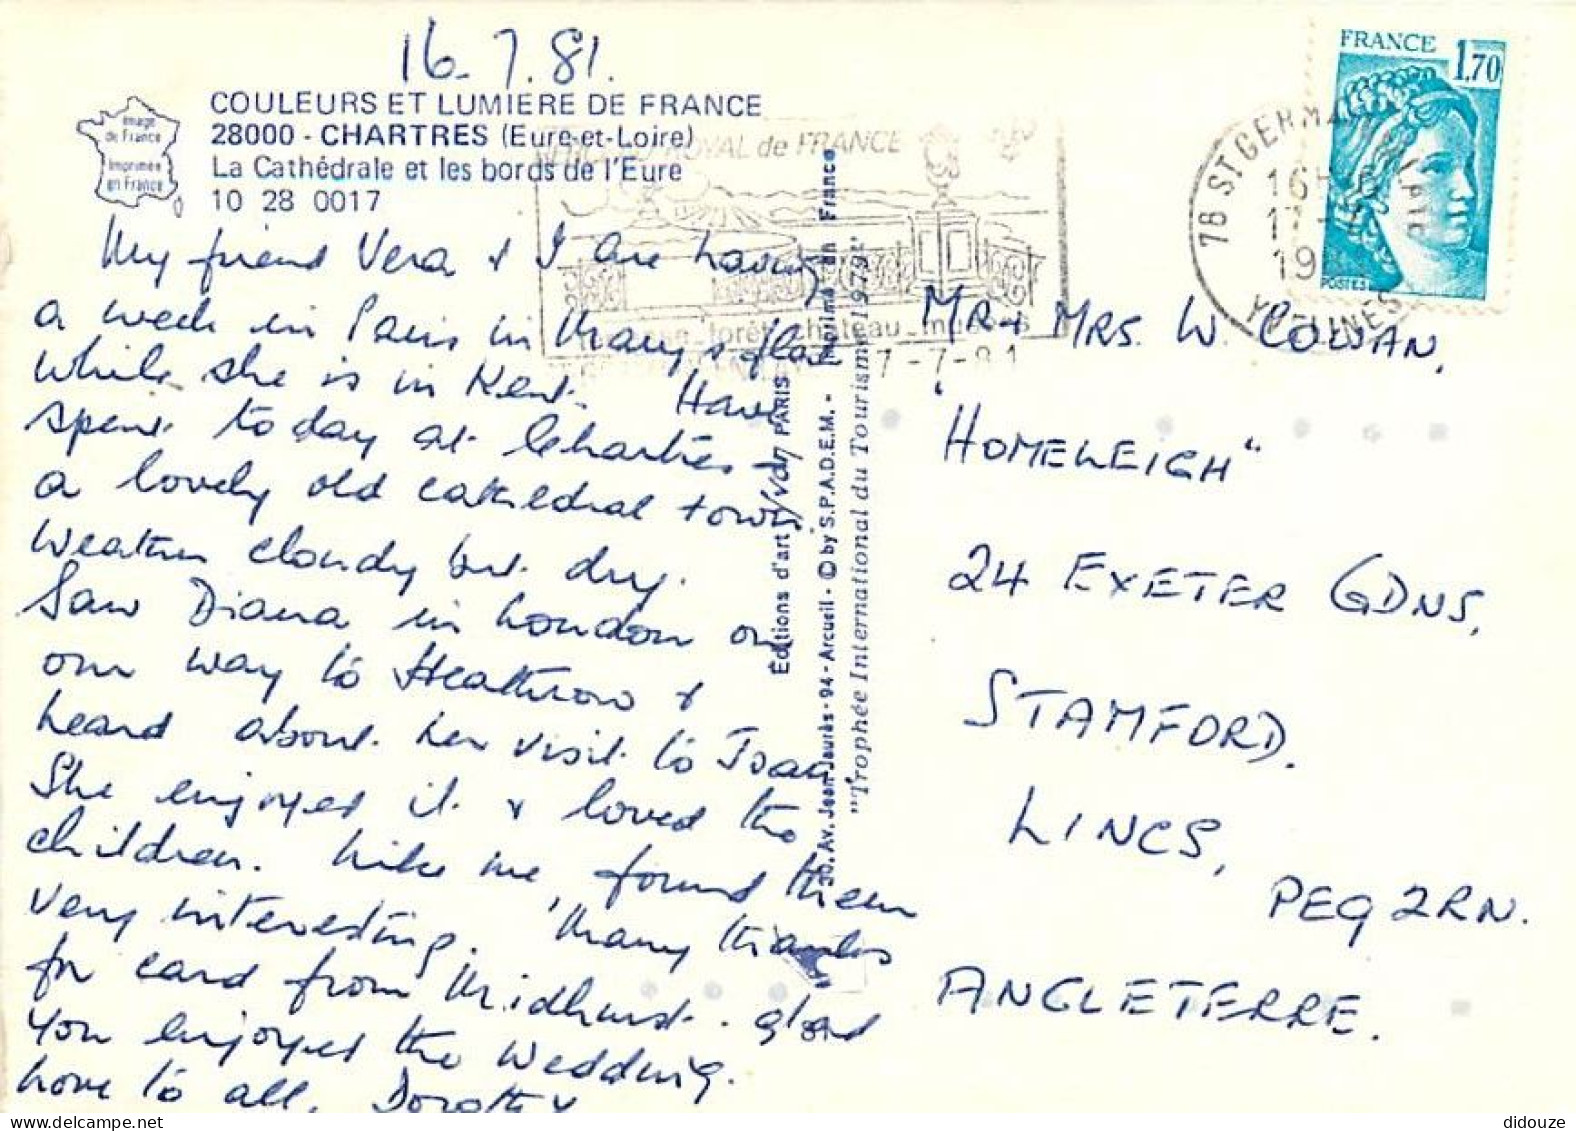 16.7.81.
COULEURS ET LUMIERE DE FRANCE
28000 - CHARTRES (Eure-et-Loire)
La Cathédrale et les bords de l'Eure
10 28 0017
Image
de France
Imprimée
en France
My friend Vera & I are having
a week in Paris in Mary's flat
while she is in Kent. Have
spent today at Chartres -
a lovely old cathedral town.
Weather cloudy but dry.
Saw Diana in London on
our way to Heathrow &
heard about her visit to Joan.
She enjoyed it & loved the
children. Like me, found them
very interesting. Many thanks
for card from Midhurst. glad
you enjoyed the wedding.
Love to all, Dorothy
Éditions d'art yvon PARIS
30, Av. Jean Jaurès - 94 - Arcueil - © by S.P.A.D.E.M. - Imprimé en France
"Trophée International du Tourisme 1979"
FRANCE 1,70
POSTES
78 ST GERMAIN EN LAYE
16H
17-7
19
YVELINES
ROYAL de FRANCE
forêt château musées
17-7-81
MR & MRS. W. COWAN,
"HOMELEIGH"
24 EXETER GDNS,
STAMFORD.
LINCS,
PE9 2RN.
ANGLETERRE.
didouze